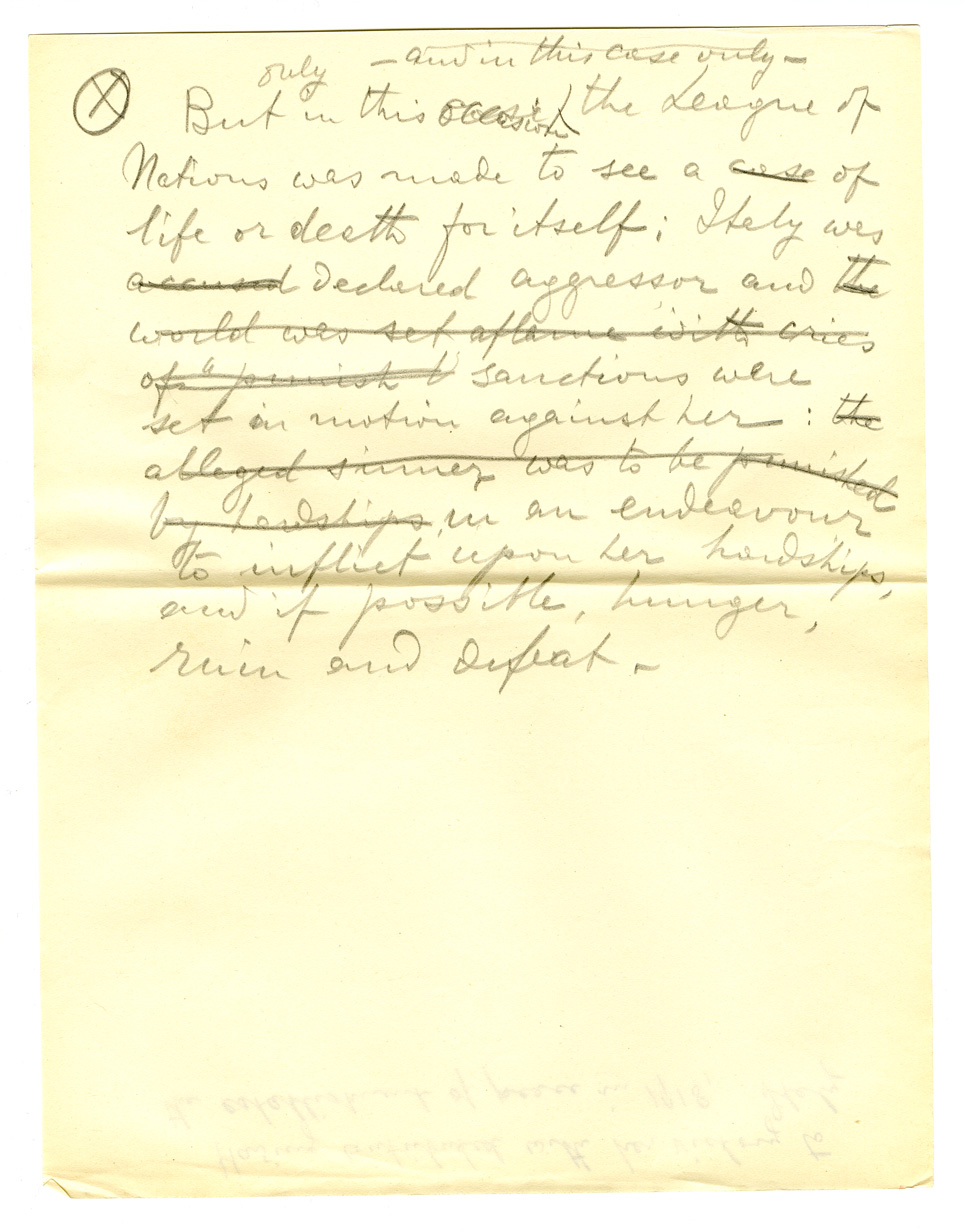 only - and in this case only -
(X) But in this occasion the League of
Nations was made to see a case of
life or death for itself; Italy was
accused declared aggressor and the
world was set aflame with cries
of "punish" sanctions were
set in motion against her : the
alleged sinner was to be punished
by hardships, in an endeavour
to inflict upon her hardships,
and if possible, hunger,
ruin and defeat.-
Having contributed with her victory to
the establishment of peace in 1918, Italy